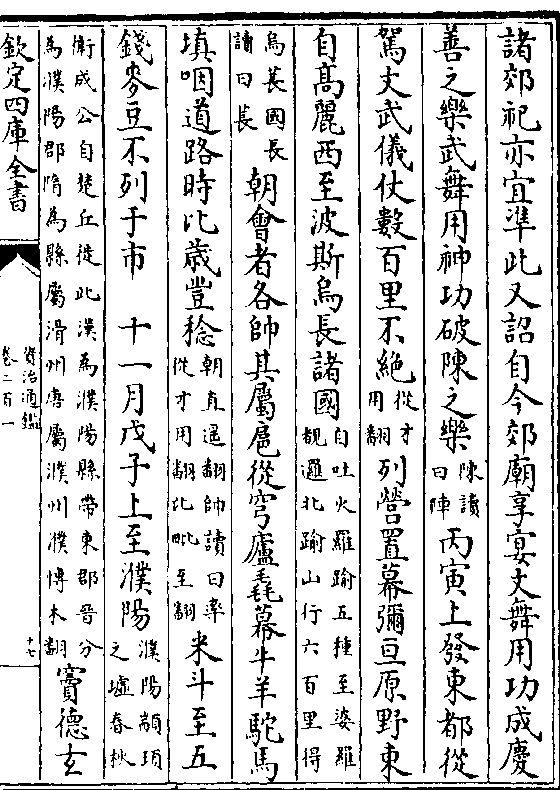 諸郊祀亦宜凖此又詔自今郊廟享宴文舞用功成慶
善之樂武舞用神功破陳之樂陳讀曰陣丙寅上發東都從
駕文武儀仗數百里不絶從才用翻列營置幕彌亘原野東
自髙麗西至波斯烏長諸國自吐火羅踰五種至婆羅覩邏北踰山行六百里得
烏萇國長讀曰萇朝會者各帥其屬扈從穹廬毳幕牛羊駝馬
填咽道路時比歲豈稔朝直遥翻帥讀曰率從才用翻比毗至翻米斗至五
錢麥豆不列于市 十一月戊子上至濮陽濮陽顓頊之墟春秋
衛成公自楚丘徙此漢為濮陽縣帶東郡晉分為濮陽郡隋為縣屬滑州唐屬濮州濮博木翻竇德玄
欽定四庫全書
資治通鑑
卷二百一
十七